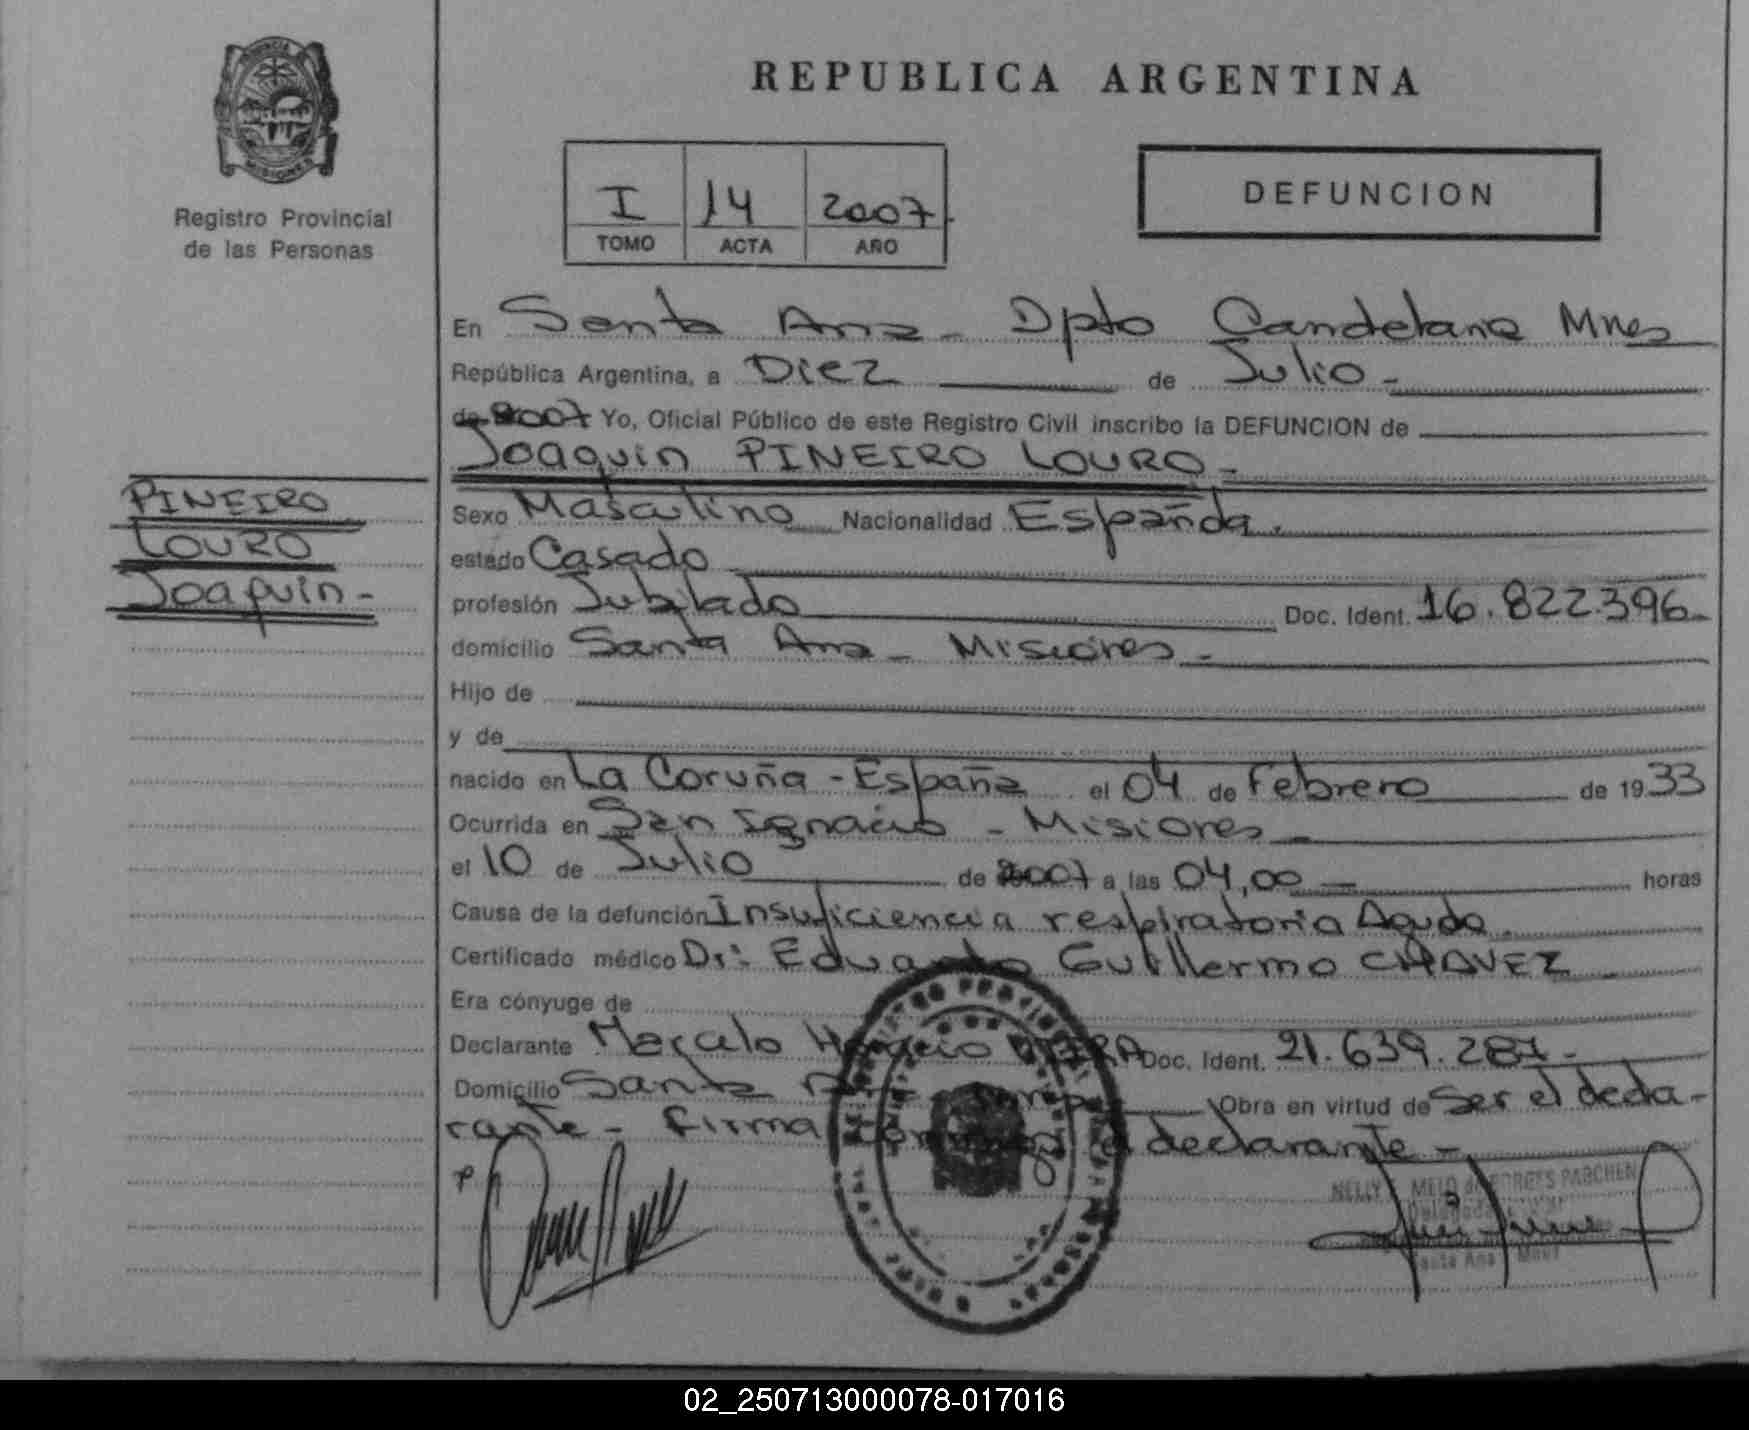 PROVINCIA
MISIONES
Registro Provincial
de las Personas
REPUBLICA ARGENTINA
I 14 2007
TOMO ACTA AÑO
DEFUNCION
En Santa Ana - Dpto Candelaria Mnes
República Argentina, a Diez de Julio -
de 2007 Yo, Oficial Público de este Registro Civil inscribo la DEFUNCION de
Joaquin PINEIRO LOURO -
PINEIRO
LOURO
Joaquin -
Sexo Masculino Nacionalidad Española.
estado Casado
profesión Jubilado Doc. Ident. 16.822.396.
domicilio Santa Ana - Misiones -
Hijo de
y de
nacido en La Coruña - España el 04 de Febrero de 1933
Ocurrida en San Ignacio - Misiones -
el 10 de Julio de 2007 a las 04,00 - horas
Causa de la defunción Insuficiencia respiratoria Aguda.
Certificado médico Dr: Eduardo Guillermo CHAVEZ
Era cónyuge de
Declarante Marcelo Horacio Doc. Ident. 21.639.287 -
Domicilio Santa Obra en virtud de Ser el decla-
rante - Firma el declarante -
NELLY MELO de TORRES PABCHEN
Santa Ana Mnes
02_250713000078-017016